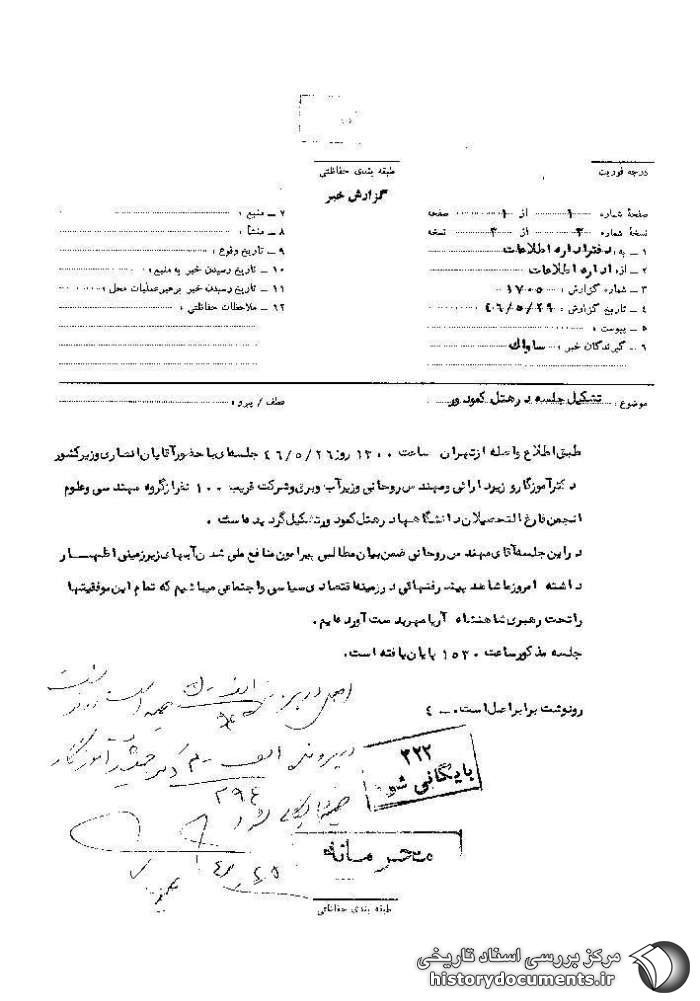 درجه فوریت
طبقه بندی حفاظتی
گزارش خبر
صفحهٔ شماره ۱ از ۱ صفحه
نسخهٔ شماره ۲ از ۲ نسخه
۱ ــ به: دفتراداره اطلاعات
۲ ــ از: اداره اطلاعات
۳ ــ شماره گزارش: ۱۷۰۰۵
۴ ــ تاریخ گزارش: ۴۶/۵/۲۹
۵ ــ پیوست:
۶ ــ گیرندگان خبر: ساواك
۷ ــ منبع:
۸ ــ منشأ:
۹ ــ تاریخ وقوع:
۱۰ ــ تاریخ رسیدن خبر به منبع:
۱۱ ــ تاریخ رسیدن خبر برهبرعملیات محل:
۱۲ ــ ملاحظات حفاظتی:
موضوع: تشکیل جلسه در هتل کمودور
عطف / پیرو:
طبق اطلاع واصله ازتهران ساعت ۱۳۰۰ روز ۴۶/۵/۲۶ جلسه‌ای با حضور آقایان انصاری وزیر کشور
دکتر آموزگار وزیر دارائی ومهندس روحانی وزیر آب وبرق وشرکت قریب ۱۰۰ نفر از گروه مهندسی وعلوم
انجمن فارغ التحصیلان دانشگاهها در هتل کمودور تشکیل گردیده است .
در این جلسه آقای مهندس روحانی ضمن بیان مطالبی پیرامون منافع ملی شدن آبهای زیرزمینی اظهار
داشته امروز ما شاهد پیشرفتهائی در زمینه اقتصادی سیاسی واجتماعی میباشیم که تمام این موفقیتها
را تحت رهبری شاهنشاه آریامهر بدست آورده‌ایم .
جلسه مذکور ساعت ۱۵۳۰ پایان یافته است .
رونوشت برابر اصل است . ــ ٤
اصل در
در پرونده الف آموزگار
۲۹٤
۳۲۲
بایگانی شود
محرمانه
طبقه بندی حفاظتی
مرکز بررسی اسناد تاریخی
historydocuments.ir